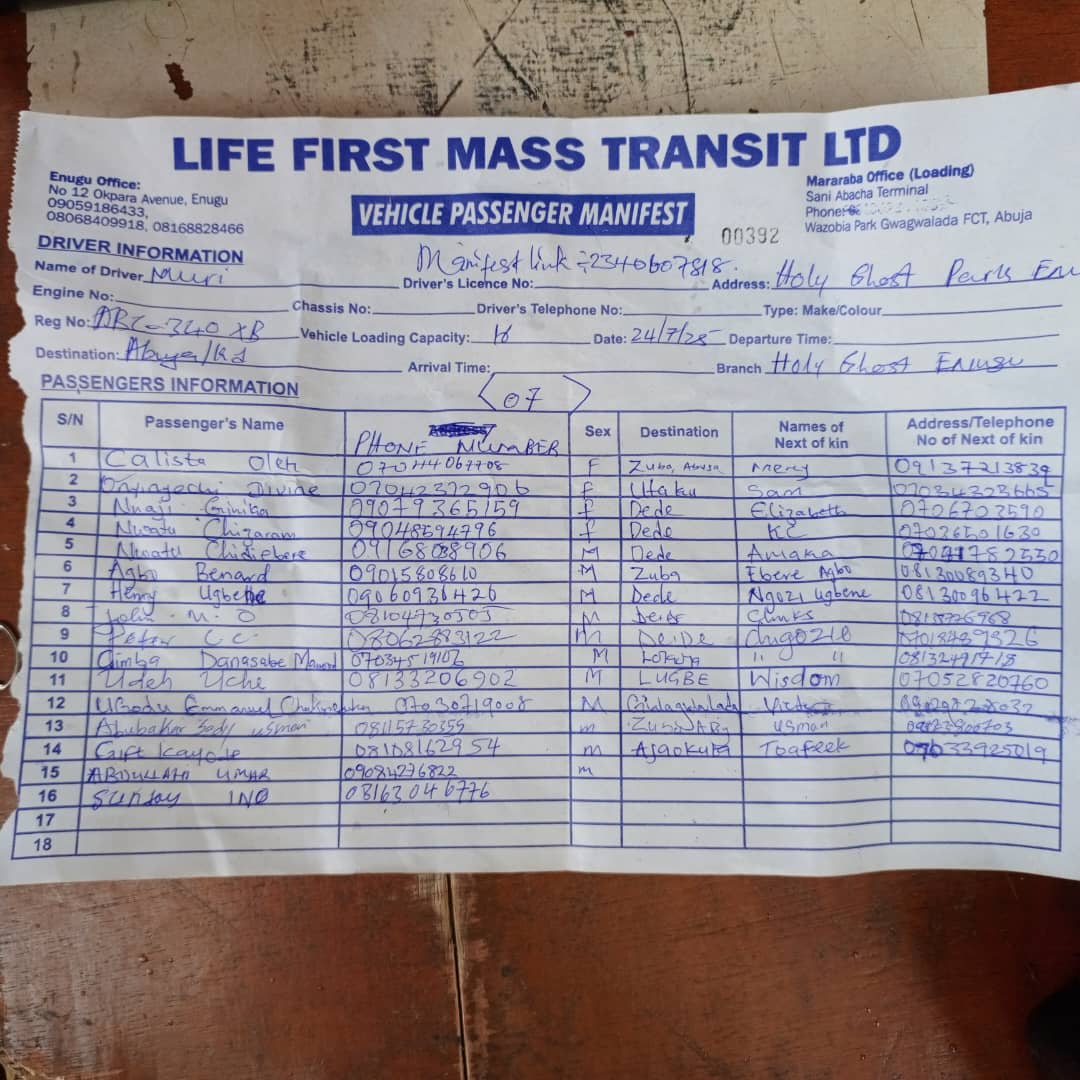 LIFE FIRST MASS TRANSIT LTD
Enugu Office:
No 12 Okpara Avenue, Enugu
09059186433,
08068409918, 08168828466
VEHICLE PASSENGER MANIFEST
00392
Mararaba Office (Loading)
Sani Abacha Terminal
Phone:
Wazobia Park Gwagwalada FCT, Abuja
DRIVER INFORMATION
Manifest link :- 2340607818.
Name of Driver Muri Driver's Licence No: Address: Holy Ghost Park Enu
Engine No: Chassis No: Driver's Telephone No: Type: Make/Colour
Reg No: 340 XB Vehicle Loading Capacity: Date: 24/7/25 Departure Time:
Destination: Abuja/Kd Arrival Time: Branch Holy Ghost Enugu
PASSENGERS INFORMATION 07
S/N Passenger's Name PHONE NUMBER Sex Destination Names of Next of kin Address/Telephone No of Next of kin
1 Calista Oleh 07044067708 F Zuba, Abuja Mercy
2 Onyinyechi Divine 07042372906 F Utako Sam 07034323665
3 Nnaji Ginika 09079365159 f Dede Elizabeth 0706703590
4 Nwatu Chizaram 09048594796 f Dede KC 07036501630
5 Nwatu Chidiebere M Dede Amaka
6 Agbo Benard 09015808610 M Zuba Ebere Agbo 08130089340
7 Henry Ugbene 09060936426 M Dede Ngozi Ugbene 08130096422
8 John . N. O 08104730505 M DeiDe
9 Peter C.C. 08062883122 M DeiDe Chigozie
10 Gimba Danasabe 07034519106 M Lokoja " "
11 Udeh Uche 08133206902 M LUGBE Wisdom 07052820760
12 Emmanuel 07030719008 M Gwagwalada
13 Abubakar usman 08115730359 m usman
14 Gift Kayode 08108162954 m Ajaokuta Toafeek
15 ABDULLAHI UMAR 09084276822 m
16 SUNDAY 08163046776
17
18